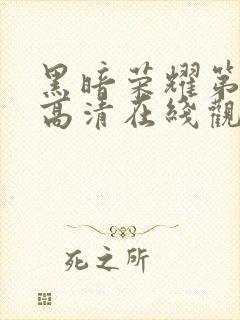 黑暗荣耀第
高清在线觀
死之所